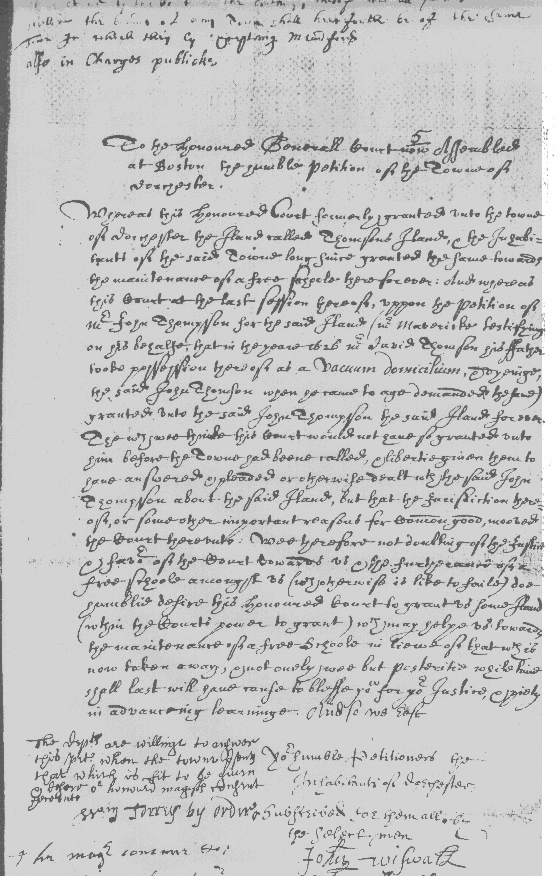 of any Town shall hence forth be of the same
in which they by
also in Charges publicke
To the honoured Generall Court now 5 Assembled
at Boston the humble Petition of the Towne of
Dorchester.
Whereas this honoured Court formerly granted vnto the towne
of Dorchester the Iland called Thomsons Iland, & the Inhabi-
tants of the said Towne long since granted the same towards
the maintenance of a free schoole there for ever: And whereas
this Court at the last session thereof, vppon the Petition of
Mr John Thompson for the said Iland (mr Mavericke testifying
on his behalfe, that in the yeare 1626 mr David Thomson his father
tooke possession thereof as a Vacuum domicilium,
the said John Thomson when he came to age demanded the same)
granted vnto the said John Thompson the said Iland for ever.
The wch wee thinke this Court would not have so granted vnto
him before the Towne had beene called, & libertie given them to
have answered & pleaded or otherwise dealt wth the said John
Thompson about the said Iland, but that the Iurisdiction there
of, or some other important reasons for Common good, moved
the Court therevnto: Wee therefore not doubting of the Iustice
& favor of the Court towards vs & the furtherance of a
free schoole amongst vs (wch otherwise is like to faile) doe
humblie desire this honoured Court to grant vs some Iland
(within the Courts power to grant) wch may helpe vs towards
the maintenance of a free Schoole in liewe of that wch is
now taken away, & not onely wee but posteritie while time
shall last will have cause to blesse you for yor Iustice, & piety
in advancing learninge. And so we rest
The depts are willinge to answer
this pet. when the towne
that which is fit to be given
& there or honourd magists consent
hereunto
Yor humble Petitioners the
Inhabitants of Dorchester
Torrey by order
Subscribed for them all by
the Select men
magists
John Wiswall